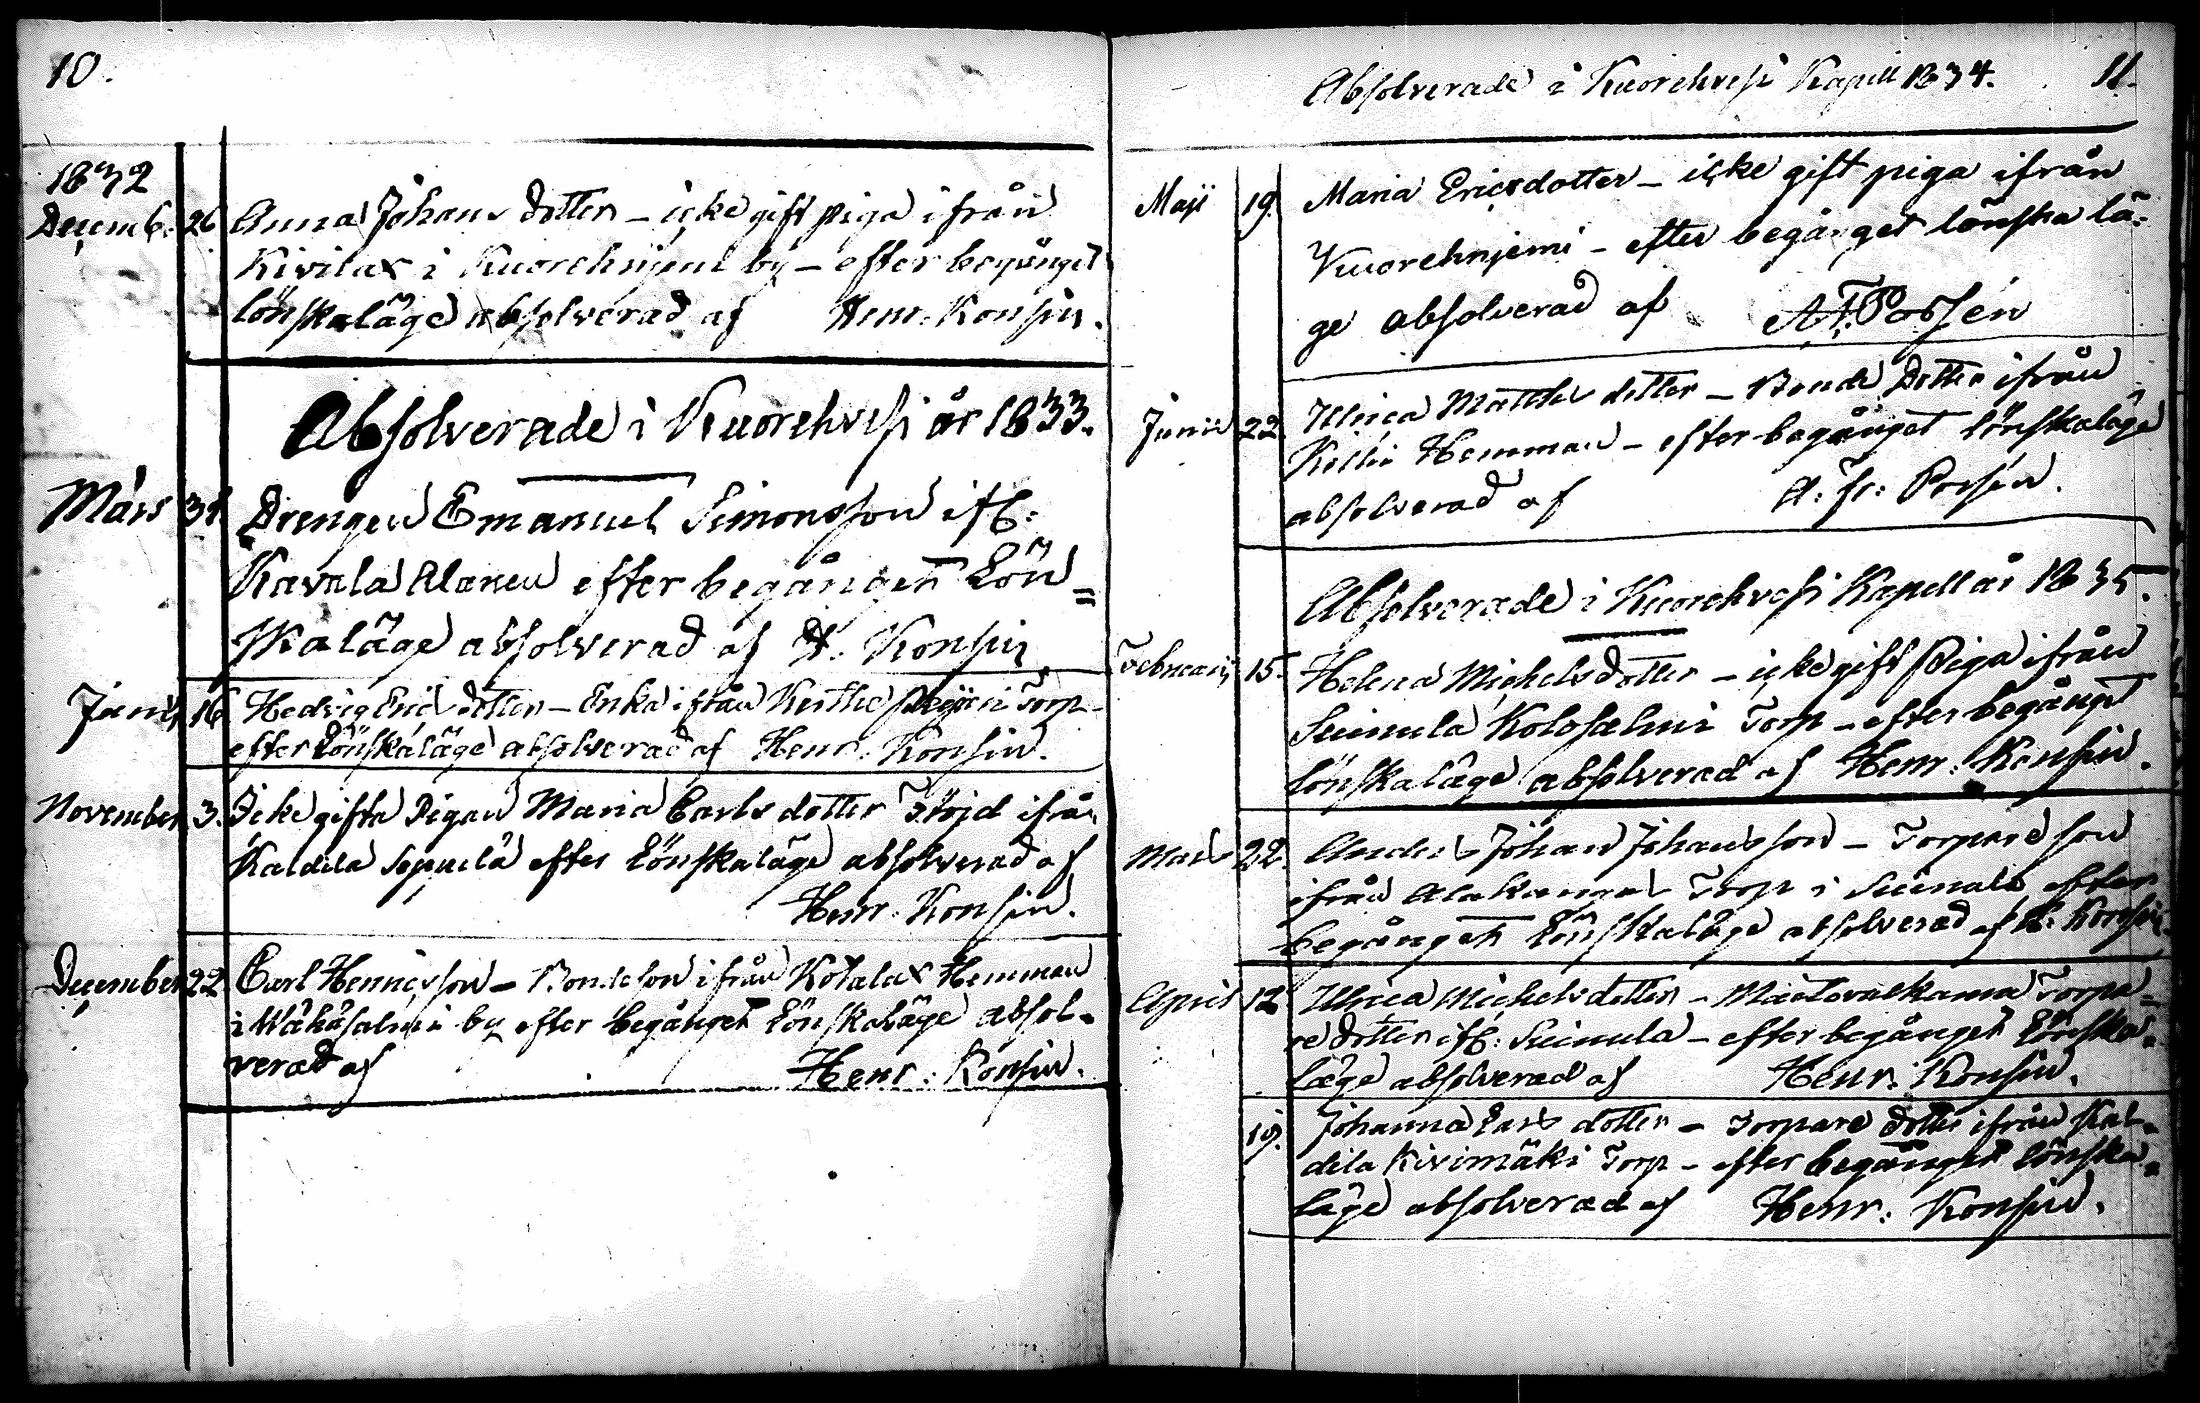 10.
1832
Decemb. 26 Anna Johans dotter – icke gift piga ifrån
Kivilax i Kuorehnjemi by – efter begånget
lönskaläge absolverad af Henr. Konsin.
Absolverade i Kuorehvesi år 1833.
Mars 31 Drengen Emanuel Simonsson ifr:
Kavala Alanen efter begånget Lön=
skaläge absolverad af H. Konsin
Junij 16 Hedvig Eric dotter – Enka ifrån Torp
efter Lönskaläge absolverad af Henr. Konsin.
November 3. Icke gifta Pigan Maria Carls dotter Flöjd ifrån
Kaldila Seppuelä efter Lönskaläge absolverad af
Henr. Konsin.
December 22 Carl Henricsson – Bondeson ifrån Kotalax Hemman
i Wähäsalmi by efter begånget Lönskaläge absol-
verad af Henr. Konsin.
Absolverade i Kuorehvesi Kapell 1834. 11.
Maji 19. Maria Ericsdotter – icke gift piga ifrån
Kuorehnjemi – efter begånget lönska lä-
ge absolverad af A. F. Porsén
Junii 22. Ulrica Matths dotter – Bonde Dotter ifrån
Hemman – efter begånget lönskaläge
absolverad af A. Fr: Porsén.
Absolverade i Kuorehvesi Kapell år 1835.
Februarij 15. Helena Michelsdotter – icke gift Piga ifrån
Suinula Kolosalmi Torp – efter begånget
Lönskaläge absolverad af Henr: Konsin.
Mars 22. Anders Johan Johansson – Torpare son
ifrån Alakangas Torp i Suinula efter
begånget Lönskaläge absolverad af H. Konsin.
April 12 Ulrica Michelsdotter – Torpa=
re dotter ifr: Suinula – efter begånget Lönska=
läge absolverad af Henr: Konsin.
19. Johanna Lars dotter – Torpare dotter ifrån Kal=
dila Kivimäki Torp – efter begånget Lönska=
läge absolverad af Henr: Konsin.